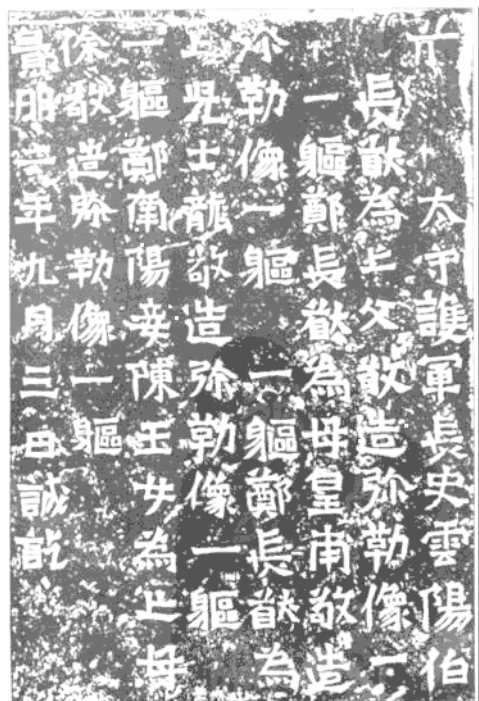 太守護軍長史雲陽伯
長猷為亡父敬造弥勒像一
一軀鄭長猷為母皇南敬造
弥勒像一軀 一軀鄭長猷為
亡児士龍敬造弥勒像一軀
一軀鄭南陽妾陳玉女為亡母
徐敬造弥勒像一軀
景明二年九月三日誡訖